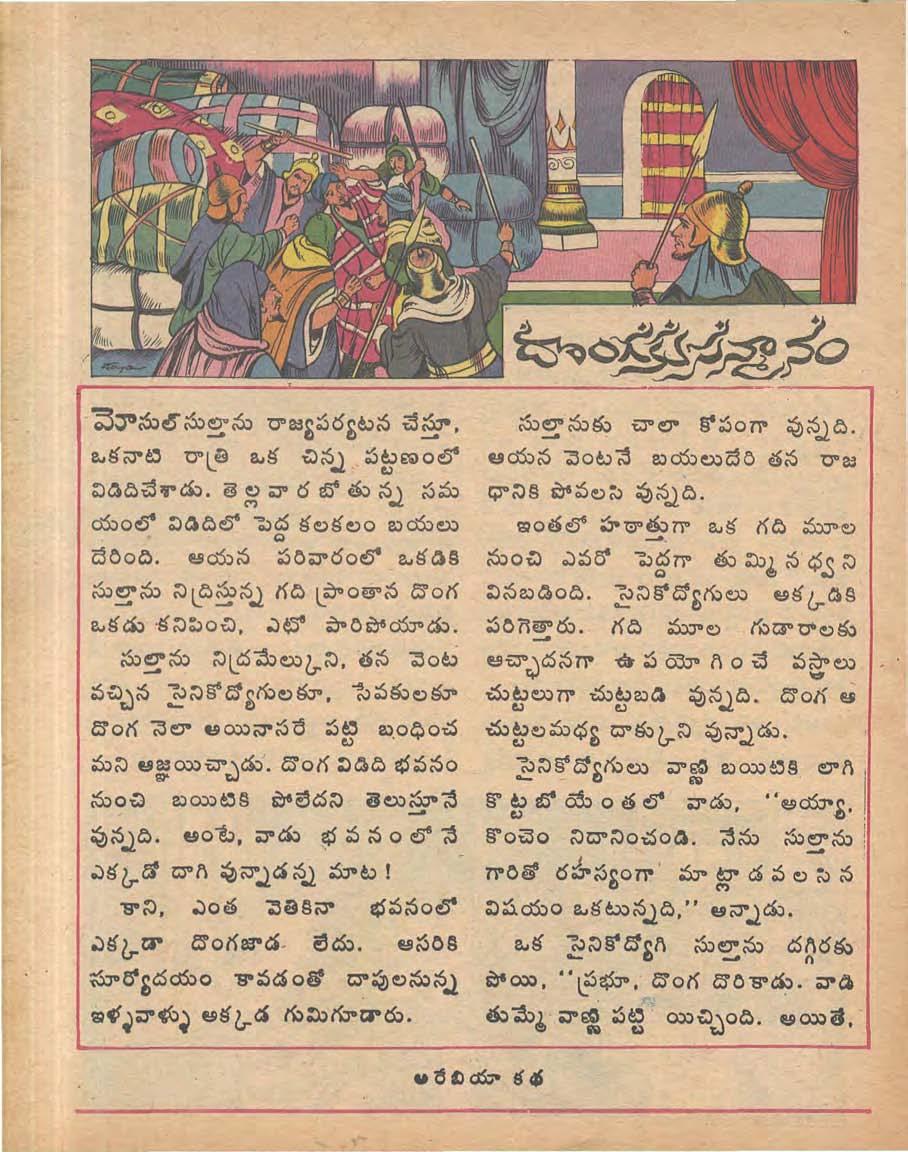 దొంగకు సన్మానం
మోసుల్ సుల్తాను రాజ్యపర్యటన చేస్తూ,
ఒకనాటి రాత్రి ఒక చిన్న పట్టణంలో
విడిదిచేశాడు. తెల్లవారబోతున్న సమ
యంలో విడిదిలో పెద్ద కలకలం బయలు
దేరింది. ఆయన పరివారంలో ఒకడికి
సుల్తాను నిద్రిస్తున్న గది ప్రాంతాన దొంగ
ఒకడు కనిపించి, ఎటో పారిపోయాడు.
సుల్తాను నిద్రమేల్కుని, తన వెంట
వచ్చిన సైనికోద్యోగులకూ, సేవకులకూ
దొంగ నెలా అయినాసరే పట్టి బంధించ
మని ఆజ్ఞయిచ్చాడు. దొంగ విడిది భవనం
నుంచి బయిటికి పోలేదని తెలుస్తూనే
వున్నది. అంటే, వాడు భవనంలోనే
ఎక్కడో దాగి వున్నాడన్న మాట!
కాని, ఎంత వెతికినా భవనంలో
ఎక్కడా దొంగజాడ లేదు. ఆసరికి
సూర్యోదయం కావడంతో దాపులనున్న
ఇళ్ళవాళ్ళు అక్కడ గుమిగూడారు.
సుల్తానుకు చాలా కోపంగా వున్నది.
ఆయన వెంటనే బయలుదేరి తన రాజ
ధానికి పోవలసి వున్నది.
ఇంతలో హఠాత్తుగా ఒక గది మూల
నుంచి ఎవరో పెద్దగా తుమ్మిన ధ్వని
వినబడింది. సైనికోద్యోగులు అక్కడికి
పరిగెత్తారు. గది మూల గుడారాలకు
ఆచ్ఛాదనగా ఉపయోగించే వస్త్రాలు
చుట్టలుగా చుట్టబడి వున్నది. దొంగ ఆ
చుట్టలమధ్య దాక్కుని వున్నాడు.
సైనికోద్యోగులు వాణ్ణి బయిటికి లాగి
కొట్టబోయేంతలో వాడు, "అయ్యా,
కొంచెం నిదానించండి. నేను సుల్తాను
గారితో రహస్యంగా మాట్లాడవలసిన
విషయం ఒకటున్నది," అన్నాడు.
ఒక సైనికోద్యోగి సుల్తాను దగ్గిరకు
పోయి, "ప్రభూ, దొంగ దొరికాడు. వాడి
తుమ్మే వాణ్ణి పట్టి యిచ్చింది. అయితే,
అరేబియా కథ